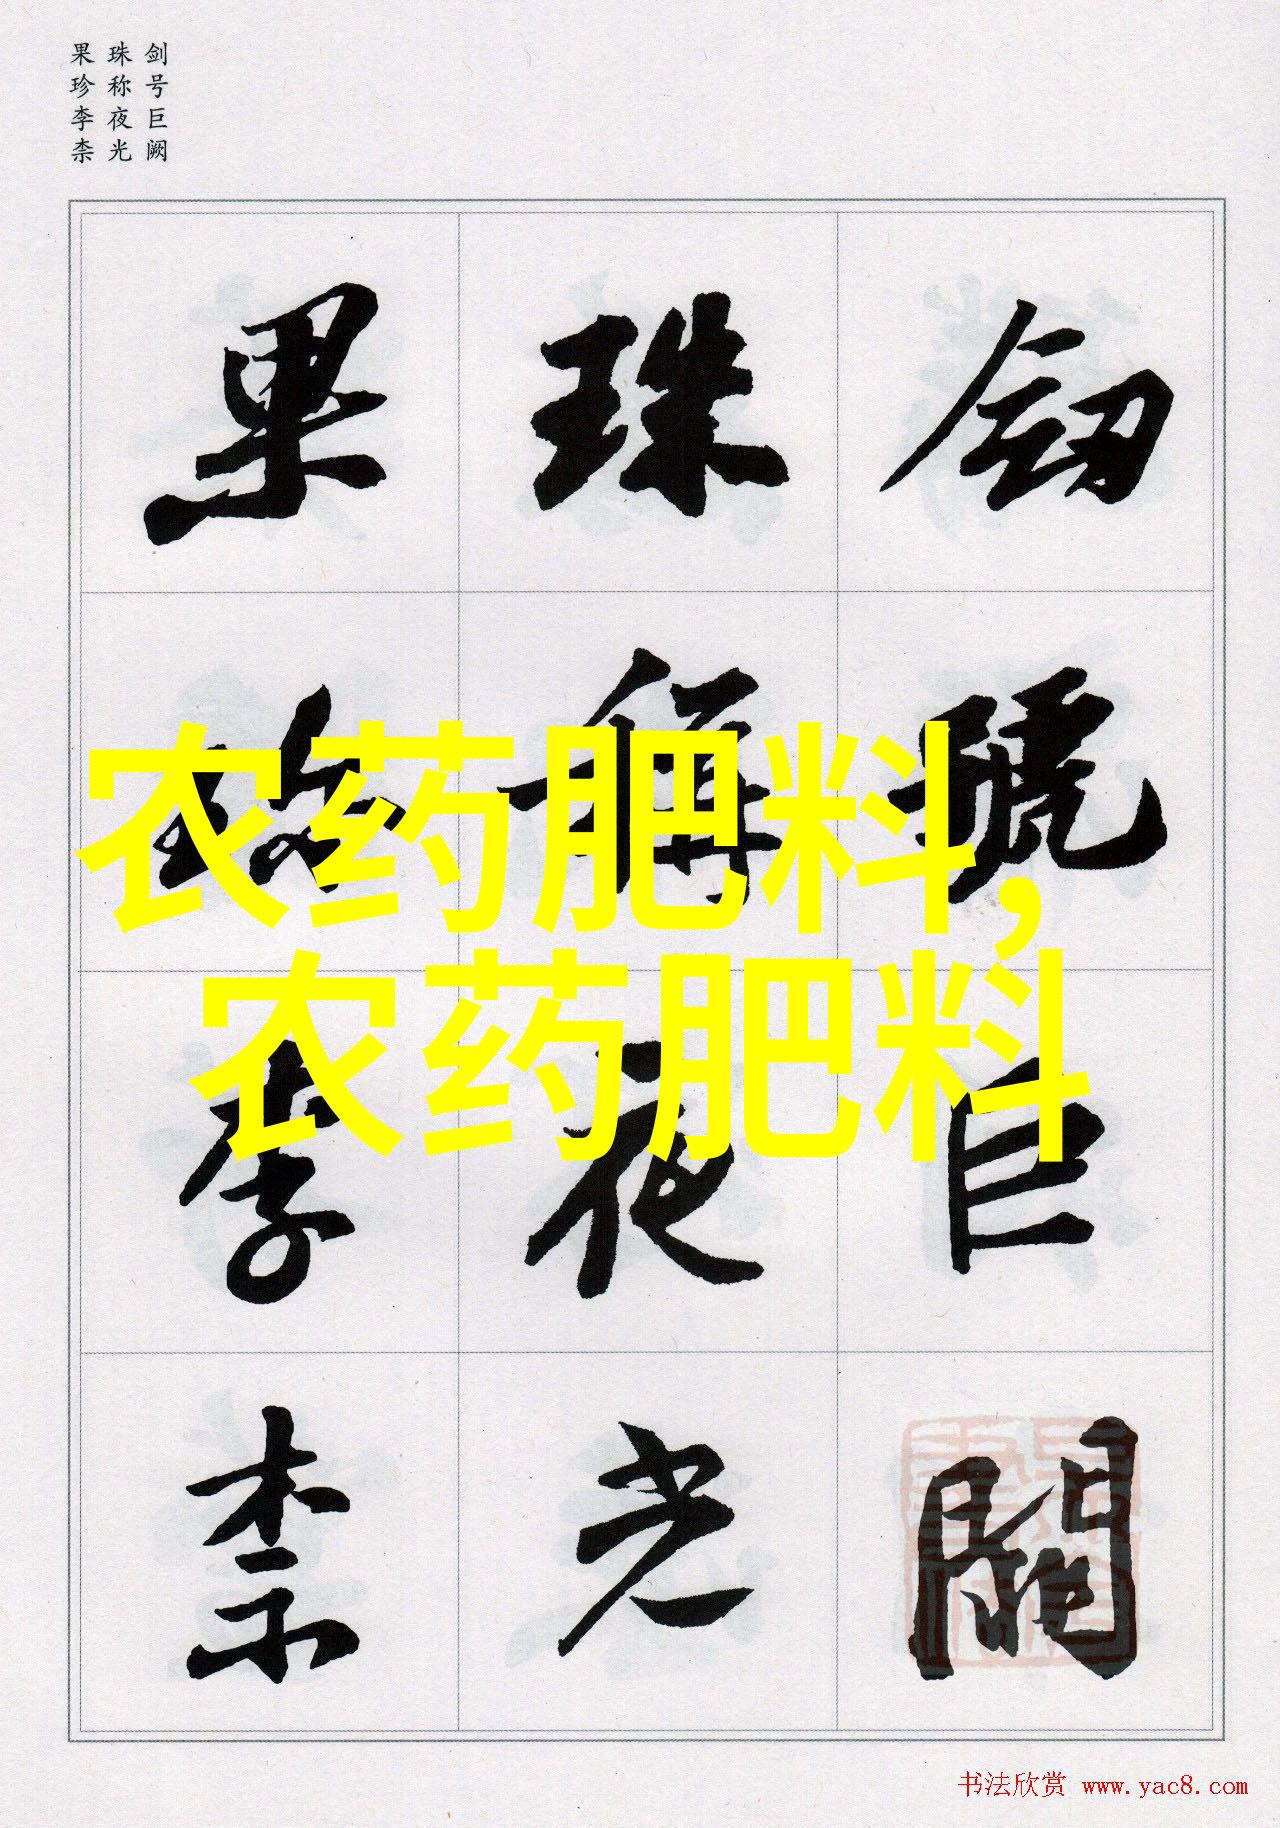 剑号巨阙
珠称夜光
果珍李柰
劒號巨闕
珠稱夜光
果珍李柰
农药肥料,
农药肥料
书法欣赏 www.yac8.com